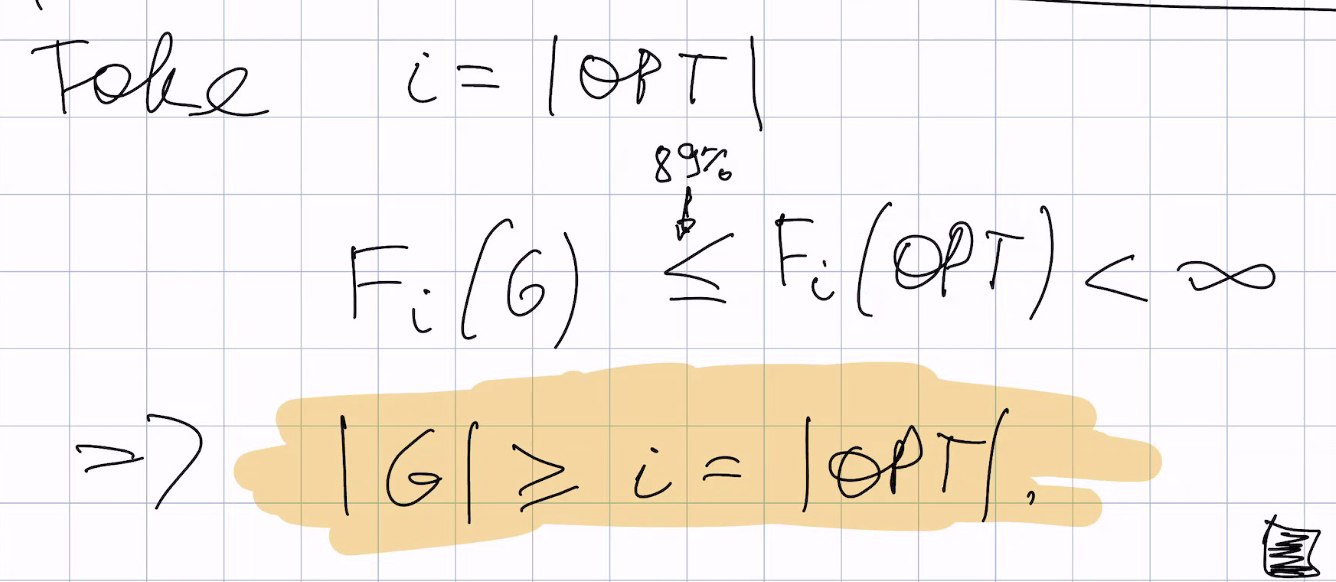 Take i = |OPT|
89%
F_i(G) ≤ F_i(OPT) < ∞
=> |G| ≥ i = |OPT|.